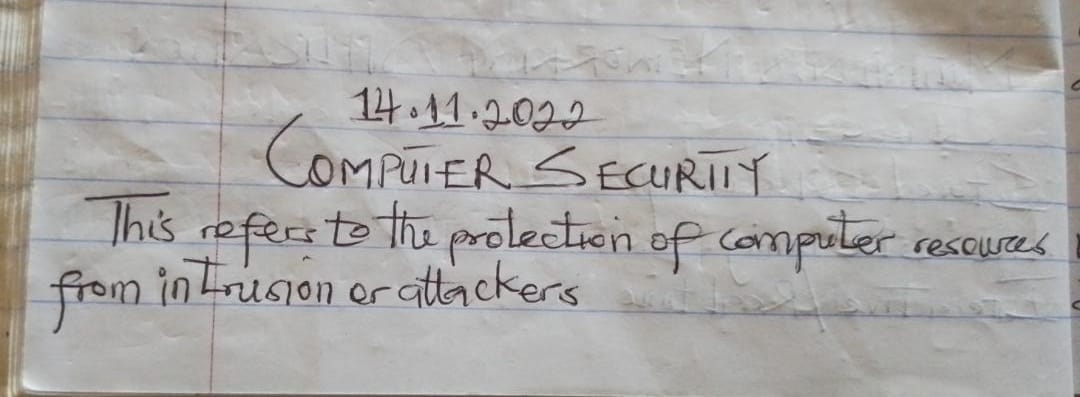 14.11.2022
COMPUTER SECURITY
This refers to the protection of computer resources
from intrusion or attackers